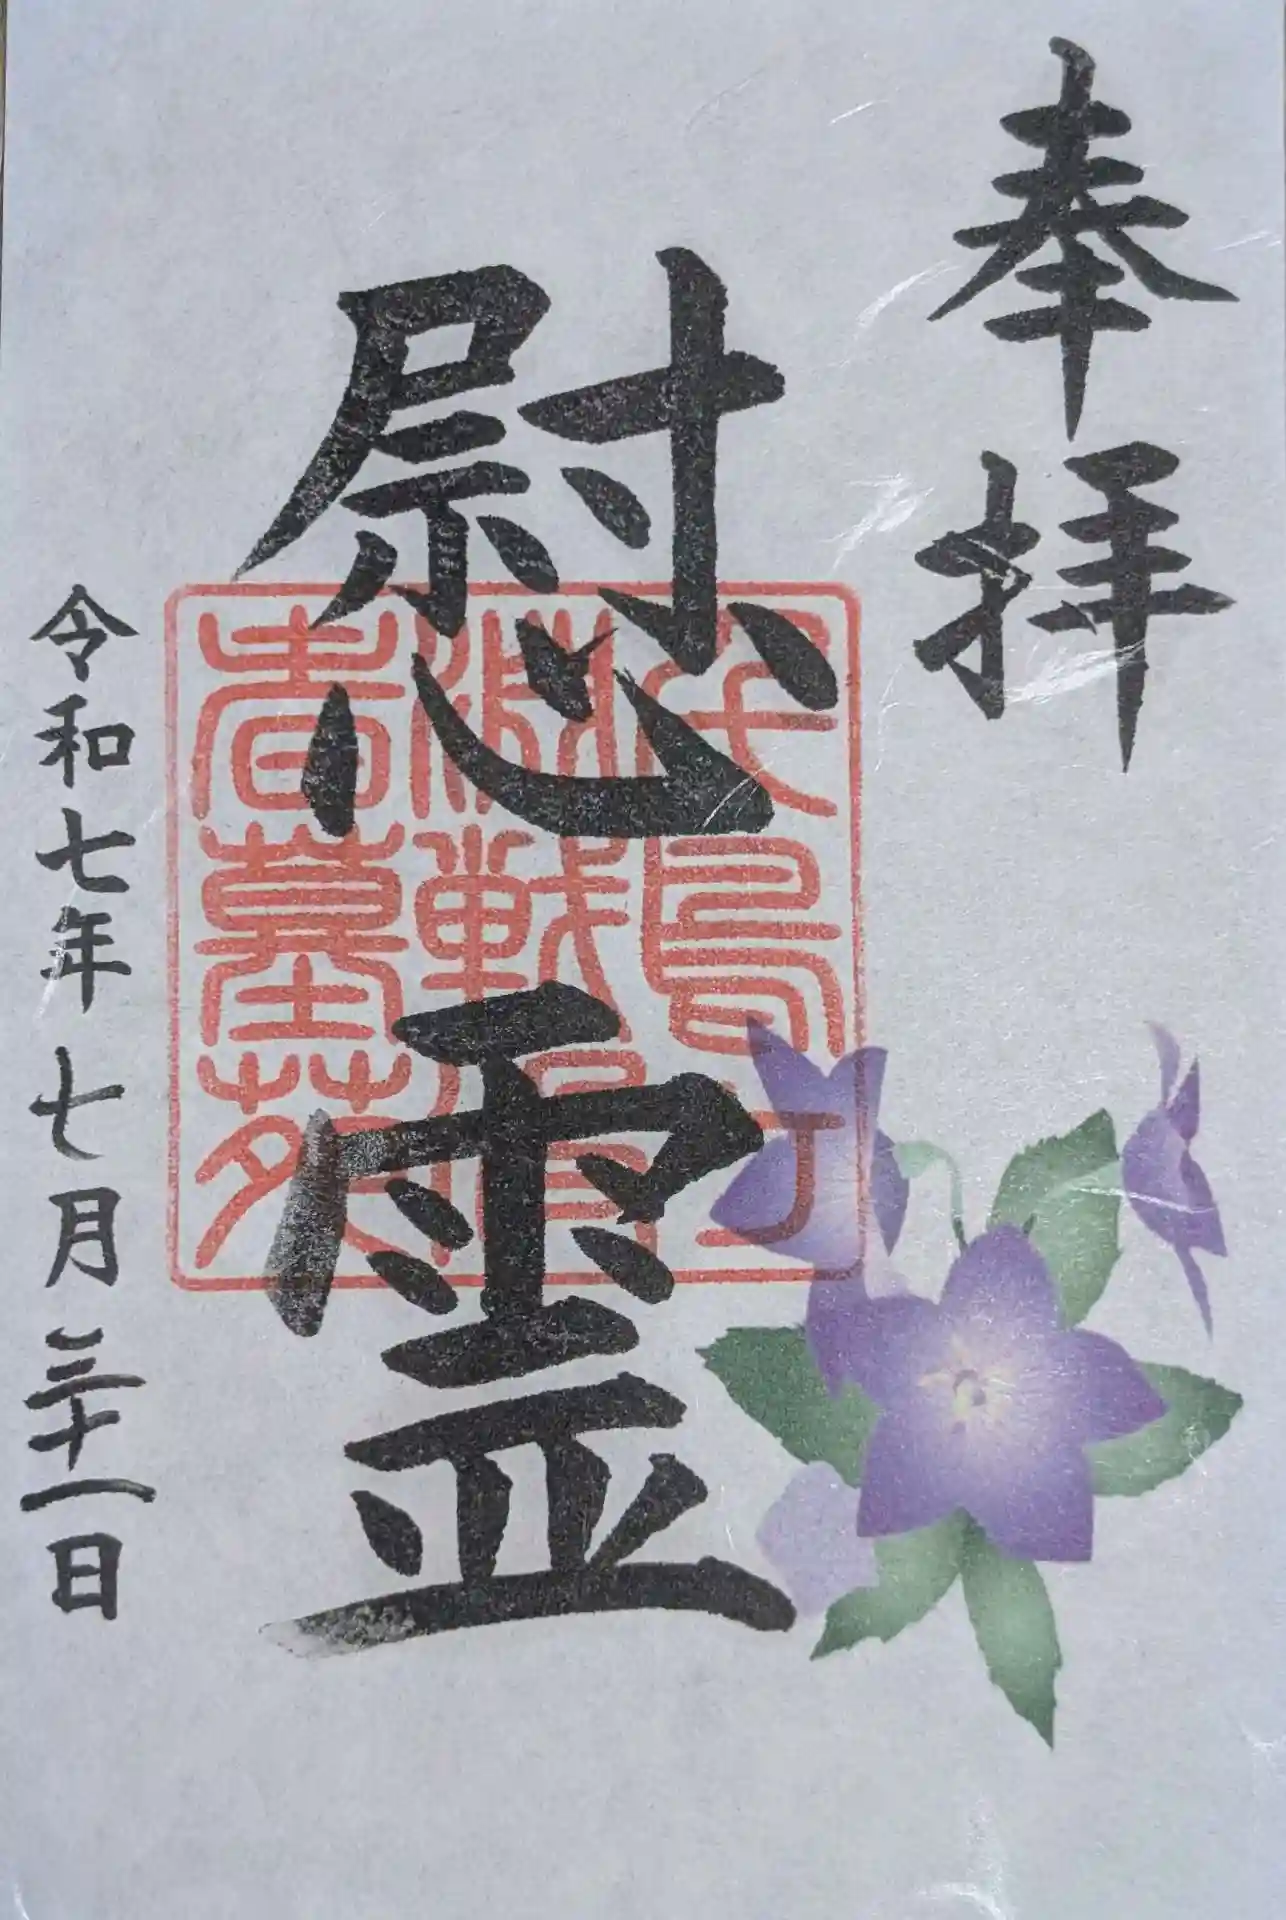 奉拝
慰霊
千鳥ケ
淵戦没
者墓苑
令和七年七月三十一日